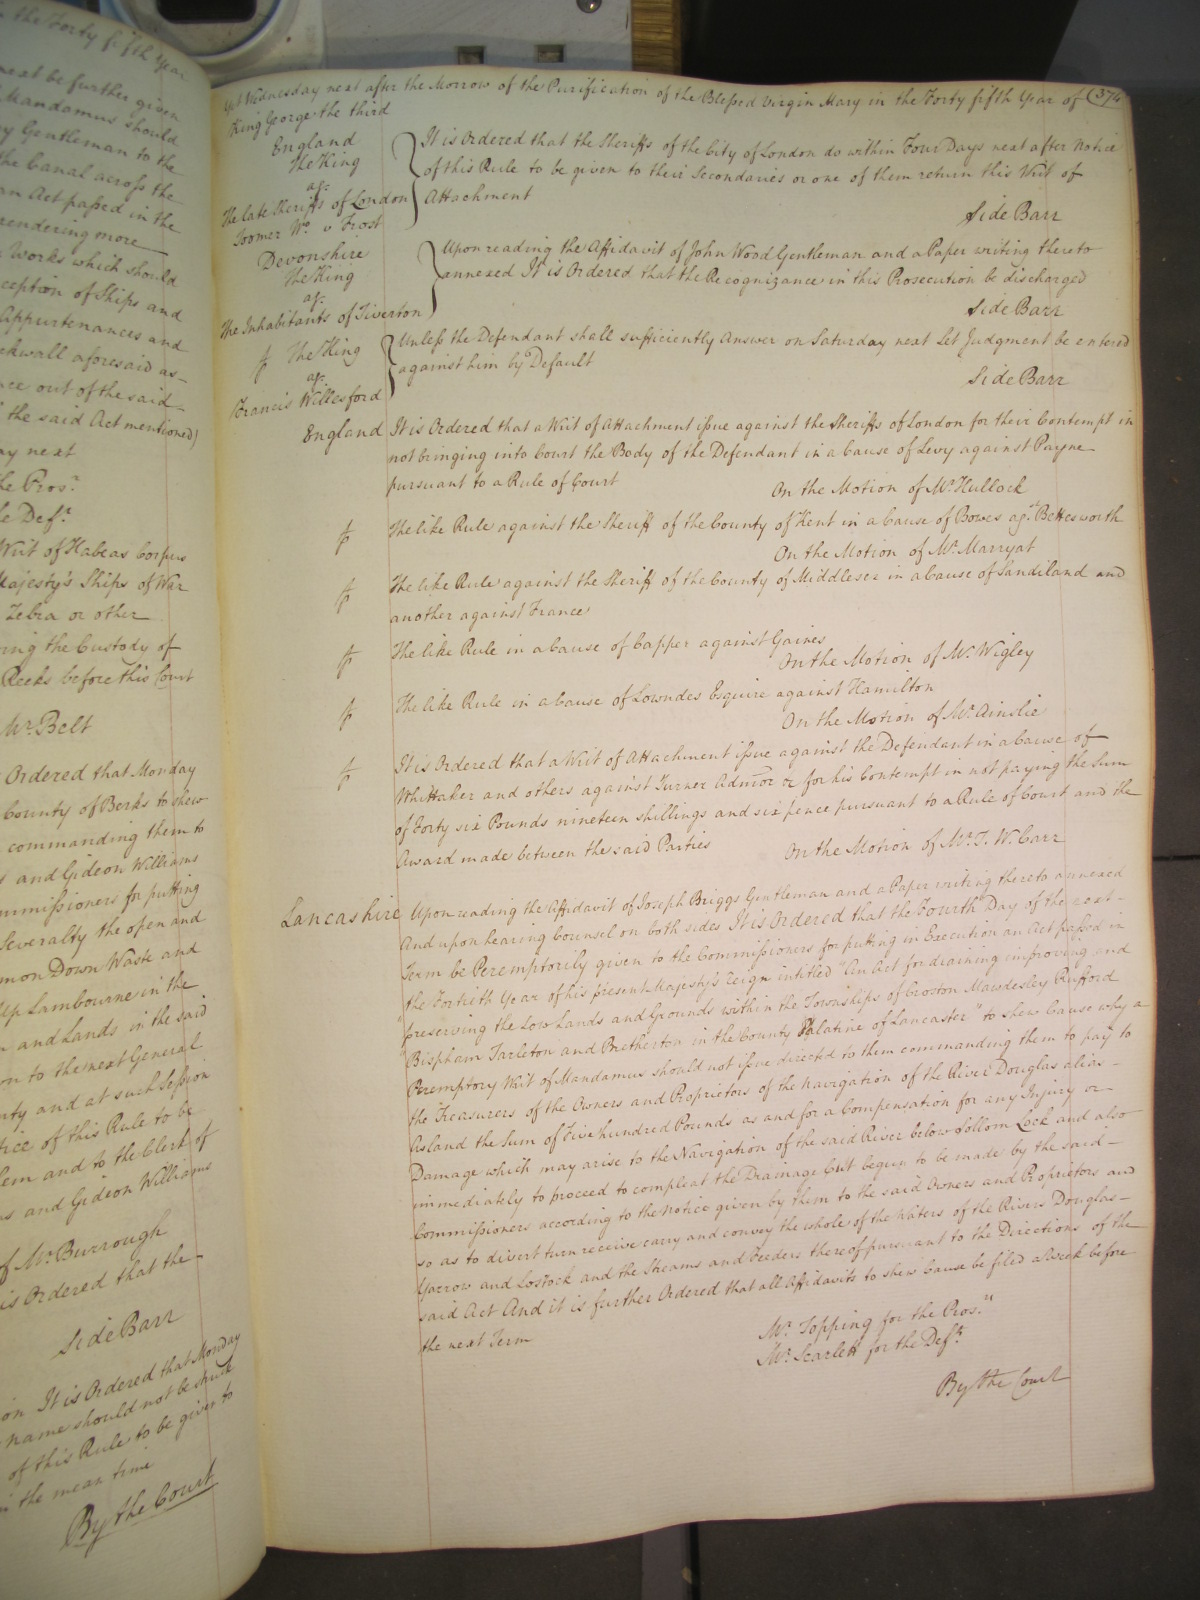 in the Forty fifth Year
next be further given
Mandamus should
Gentleman to the
the Canal across the
an Act passed in the
rendering more
Works which should
ception of Ships and
Appurtenances and
ckwall aforesaid as
nce out of the said
the said Act mentioned)
ay next
the Pros.r
le Def.t
Writ of Habeas Corpus
Majesty's Ships of War
Zebra or other
ring the Custody of
Reeks before this Court
Mr. Belt
Ordered that Monday
County of Berks to shew
commanding them to
and Gideon Williams
ommissioners for putting
Severalty the open and
mon Down Waste and
Up Lambourne in the
and Lands in the said
on to the next General
nty and at such Session
tice of this Rule to be
hem and to the Clerk of
us and Gideon Williams
of Mr. Burrough
is Ordered that the
Side Barr
on It is Ordered that Monday
name should not be struck
of this Rule to be given to
in the mean time
By the Court
Yet Wednesday next after the Morrow of the Purification of the Blessed Virgin Mary in the Forty fifth Year of 374
King George the third
England
The King
ag.
The late Sheriffs of London
Toomer Wo. v Frost
It is Ordered that the Sheriffs of the City of London do within Four Days next after Notice
of this Rule to be given to their Secondaries or one of them return this Writ of
Attachment
Side Barr
Devonshire
The King
ag.
The Inhabitants of Tiverton
Upon reading the Affidavit of John Wood Gentleman and a Paper writing thereto
annexed It is Ordered that the Recognizance in this Prosecution be discharged
Side Barr
The King
ag.
Francis Willesford
Unless the Defendant shall sufficiently Answer on Saturday next Let Judgment be entered
against him by Default
Side Barr
England It is Ordered that a Writ of Attachment issue against the Sheriffs of London for their Contempt in
not bringing into Court the Body of the Defendant in a Cause of Levy against Payne
pursuant to a Rule of Court
On the Motion of Mr. Hullock
The like Rule against the Sheriff of the County of Kent in a Cause of Bowes ag.t Bettesworth
On the Motion of Mr. Marryat
The like Rule against the Sheriff of the County of Middlesex in a Cause of Sandiland and
another against France
The like Rule in a Cause of Capper against Gaines
On the Motion of Mr. Wigley
The like Rule in a Cause of Lowndes Esquire against Hamilton
On the Motion of Mr. Ainslie
It is Ordered that a Writ of Attachment issue against the Defendant in a Cause of
Whittaker and others against Turner Admor &c for his Contempt in not paying the Sum
of Forty six Pounds nineteen shillings and six pence pursuant to a Rule of Court and the
Award made between the said Parties
On the Motion of Mr. T. W. Carr
Lancashire Upon reading the Affidavit of Joseph Briggs Gentleman and a Paper writing thereto annexed
And upon hearing Counsel on both sides It is Ordered that the Fourth Day of the next
Term be Peremptorily given to the Commissioners for putting in Execution an Act passed in
the Fortieth Year of his present Majesty's Reign intitled "An Act for draining improving and
"preserving the Low Lands and Grounds within the Townships of Croston Mawdesley Rufford
"Bispham Tarleton and Bretherton in the County Palatine of Lancaster" to shew Cause why a
Peremptory Writ of Mandamus should not issue directed to them commanding them to pay to
the Treasurers of the Owners and Proprietors of the Navigation of the River Douglas alias
Asland the Sum of Five hundred Pounds as and for a Compensation for any Injury or
Damage which may arise to the Navigation of the said River below Sollom Lock and also
immediately to proceed to compleat the Drainage Cut begun to be made by the said
Commissioners according to the Notice given by them to the said Owners and Proprietors and
so as to divert turn receive carry and convey the whole of the Waters of the Rivers Douglas
Yarrow and Lostock and the Streams and Feeders thereof pursuant to the Directions of the
said Act And it is further Ordered that all Affidavits to shew Cause be filed a Week before
the next Term
Mr. Topping for the Pros.rs
Mr. Scarlett for the Def.ts
By the Court